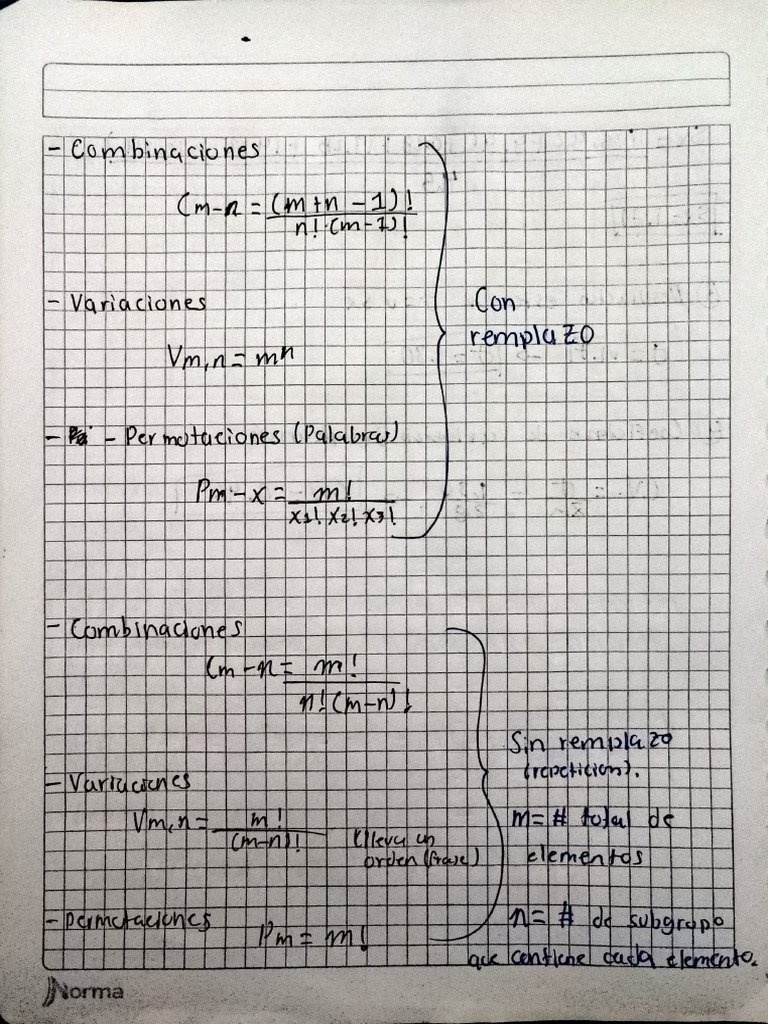 - Combinaciones
Cm-n = (m+n-1)!
n!·(m-1)!
- Variaciones
Vm,n = mⁿ
Con
remplazo
- - Permutaciones (Palabras)
Pm-x = m!
x1! x2! x3!
- Combinaciones
Cm-n = m!
n!(m-n)!
Sin remplazo
(repeticion).
- Variaciones
Vm,n = m!
(m-n)!
(lleva un
orden (frase)
m = # total de
elementos
- Permutaciones
Pm = m!
n = # de subgrupo
que contiene cada elemento.
Norma